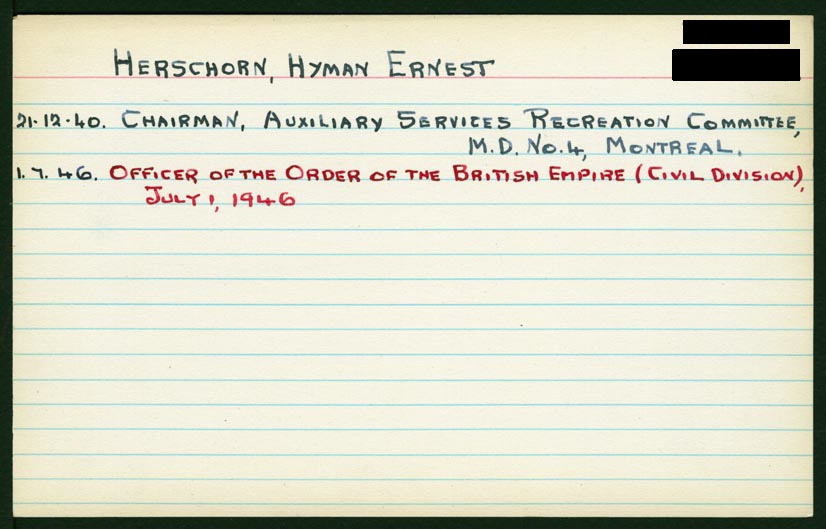 HERSCHORN, HYMAN ERNEST
21·12·40. CHAIRMAN, AUXILIARY SERVICES RECREATION COMMITTEE,
M.D. No.4, MONTREAL.
1.7.46. OFFICER OF THE ORDER OF THE BRITISH EMPIRE (CIVIL DIVISION),
JULY 1, 1946